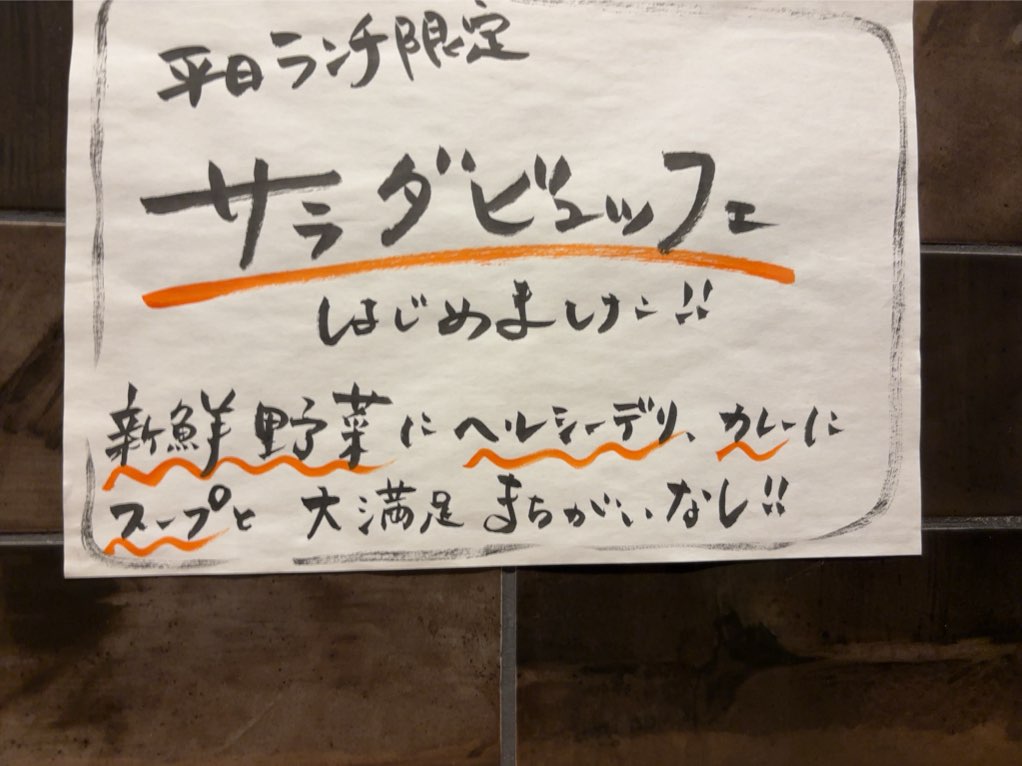 平日ランチ限定
サラダビュッフェ
はじめました!!
新鮮野菜にヘルシーデリ、カレーに
スープと大満足まちがいなし!!